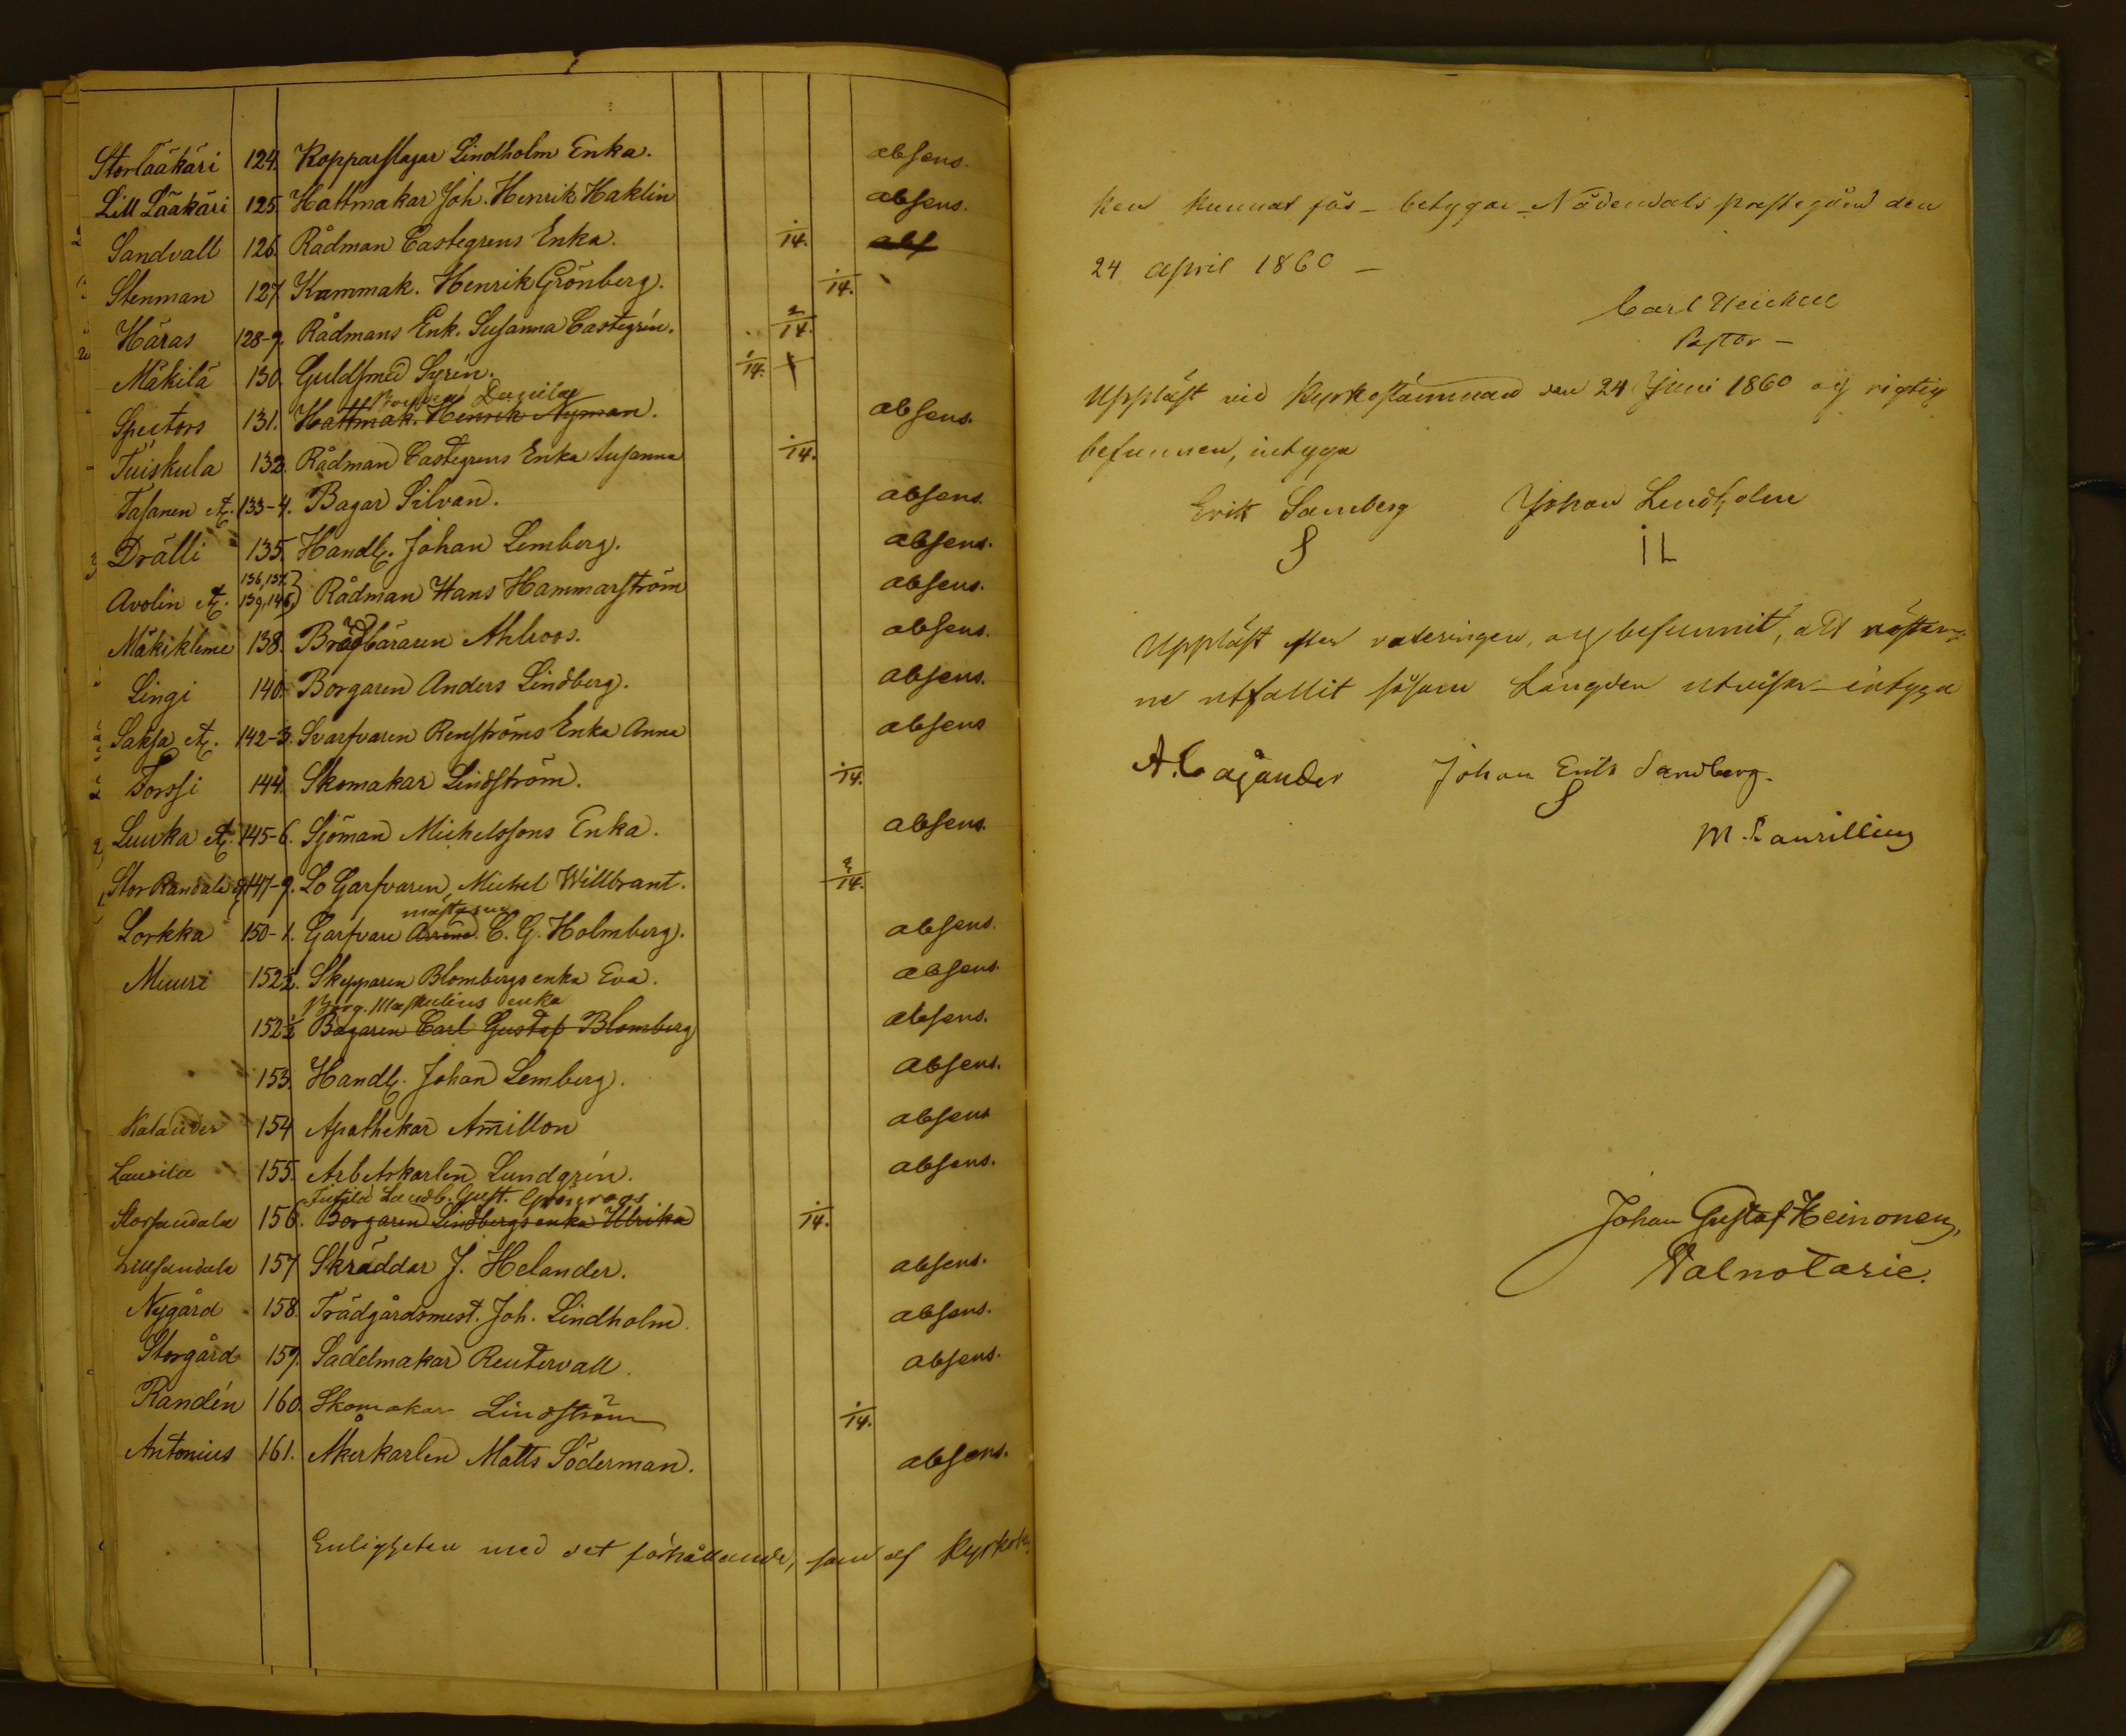 Storlaäkäri 124. Kopparslagar Lindholm Enka. absens.
Lill Lääkäri 125. Hattmakar Joh. Henrik Haklin absens.
Sandvall 126. Rådman Castegrens Enka. 1/14. abs
Stenman 127. Kammak. Henrik Grönberg. 1/14.
Häras 128-9. Rådmans Enk. Susanna Castegrén. 2/14.
Mäkilä 130. Guldsmed Syrén. 1/14.
Spectors 131. Hattmak. Henrik Nyman. absens.
Tuiskula 132. Rådman Castegrens Enka Susanna 1/14.
Tasanen etc. 133-4. Bagar Silvan. absens.
Drälli 135. Handl. Johan Lemberg. absens.
136, 137.
Avolin etc. 139, 146. Rådman Hans Hammarström absens.
Mäkiklime 138. Brädbäraren Ahlroos. absens.
Lingi 140. Borgaren Anders Lindberg. absens.
Saksa etc. 142-3. Svarfvaren Renströms Enka Anna absens
Forssi 144. Skomakar Lindström. 1/14.
Luuka etc. 145-6. Sjöman Michelssons Enka. absens.
Stor Randala 147-9. Lo Garfvaren Michel Willbrant. 2/14.
mästaren
Lorkka 150-1. Garfvare C. G. Holmberg. absens.
Muuri 152 1/2. Skepparen Blombergs enka Eva. absens.
Borg. enka
152 1/2 Bagaren Carl Gustaf Blomberg absens.
153. Handl. Johan Lemberg. absens.
Kalander 154 Apothekar Amillon absens
Laurila 155. Arbetskarlen Lundgrén. absens.
Landb. Gust. Grönroos
Storsandala 156. Borgaren Lindbergs enka Ulrika 1/14.
Lillsandala 157 Skräddar J. Helander. absens.
Nygård 158. Trädgårdsmest. Joh. Lindholm. absens.
Storgård 159. Sadelmakar Reutervall. absens.
Randén 160. Skomakar Lindström 1/14.
Antonius 161. Åkerkarlen Matts Söderman. absens.
Enligheten med det förhållande, som af Kyrkobö
ken kunnat fås - betygar - Nådendals prestegård den
24 april 1860 -
Carl Heickell
Pastor -
Uppläst vid Kyrkostämman den 24 Juni 1860 och rigtig
befunnen, intyga
Erik Samberg Johan Lindholm
S I L
Uppläst efter voteringen, och befunnit, att röster-
ne utfallit såsom Längden utvisar - intyga
A. Cajander Johan Erik Sandberg.
S
M. Laurillius
Johan Gustaf Heinonen,
Valnotarie.